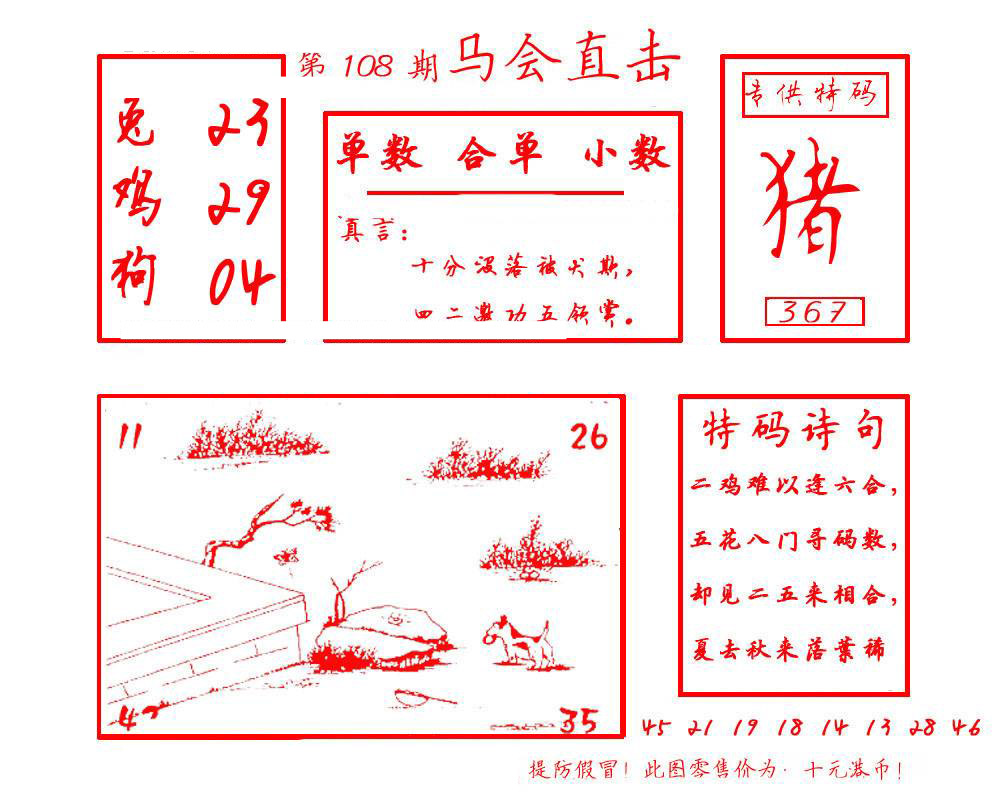 第 108 期 马会直击
兔 23
鸡 29
狗 04
单数 合单 小数
真言：
十分没落被犬欺，
四二邀功五领赏。
专供特码
猪
367
11
26
35
特码诗句
二鸡难以逢六合，
五花八门寻码数，
却见二五来相合，
夏去秋来落葉稀
45 21 19 18 14 13 28 46
提防假冒！此图零售价为·十元港币！